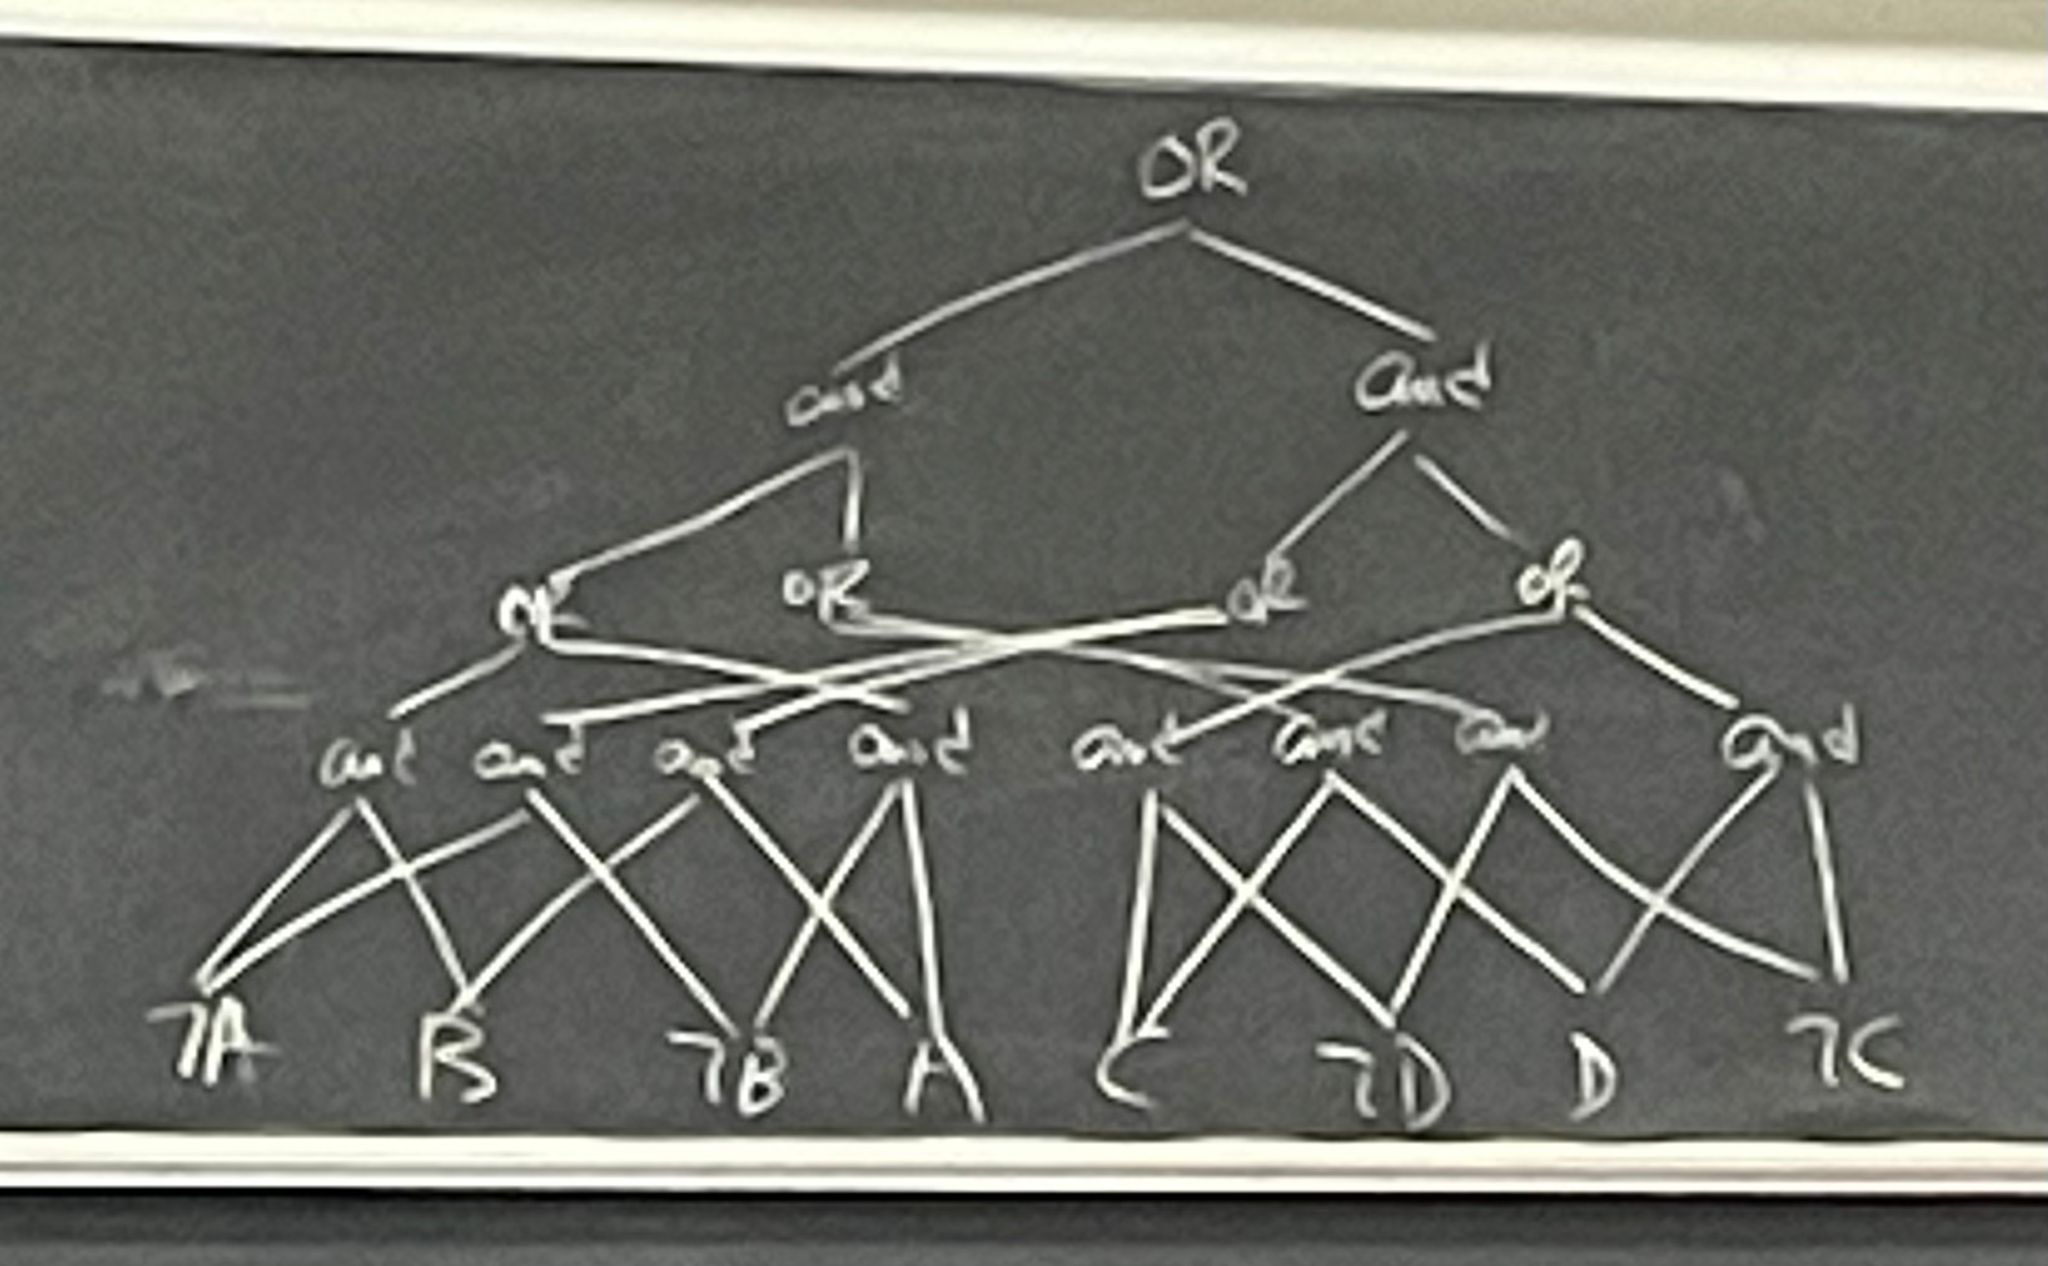 OR
and and
OR OR OR OR
and and and and and and an and
¬A B ¬B A C ¬D D ¬C